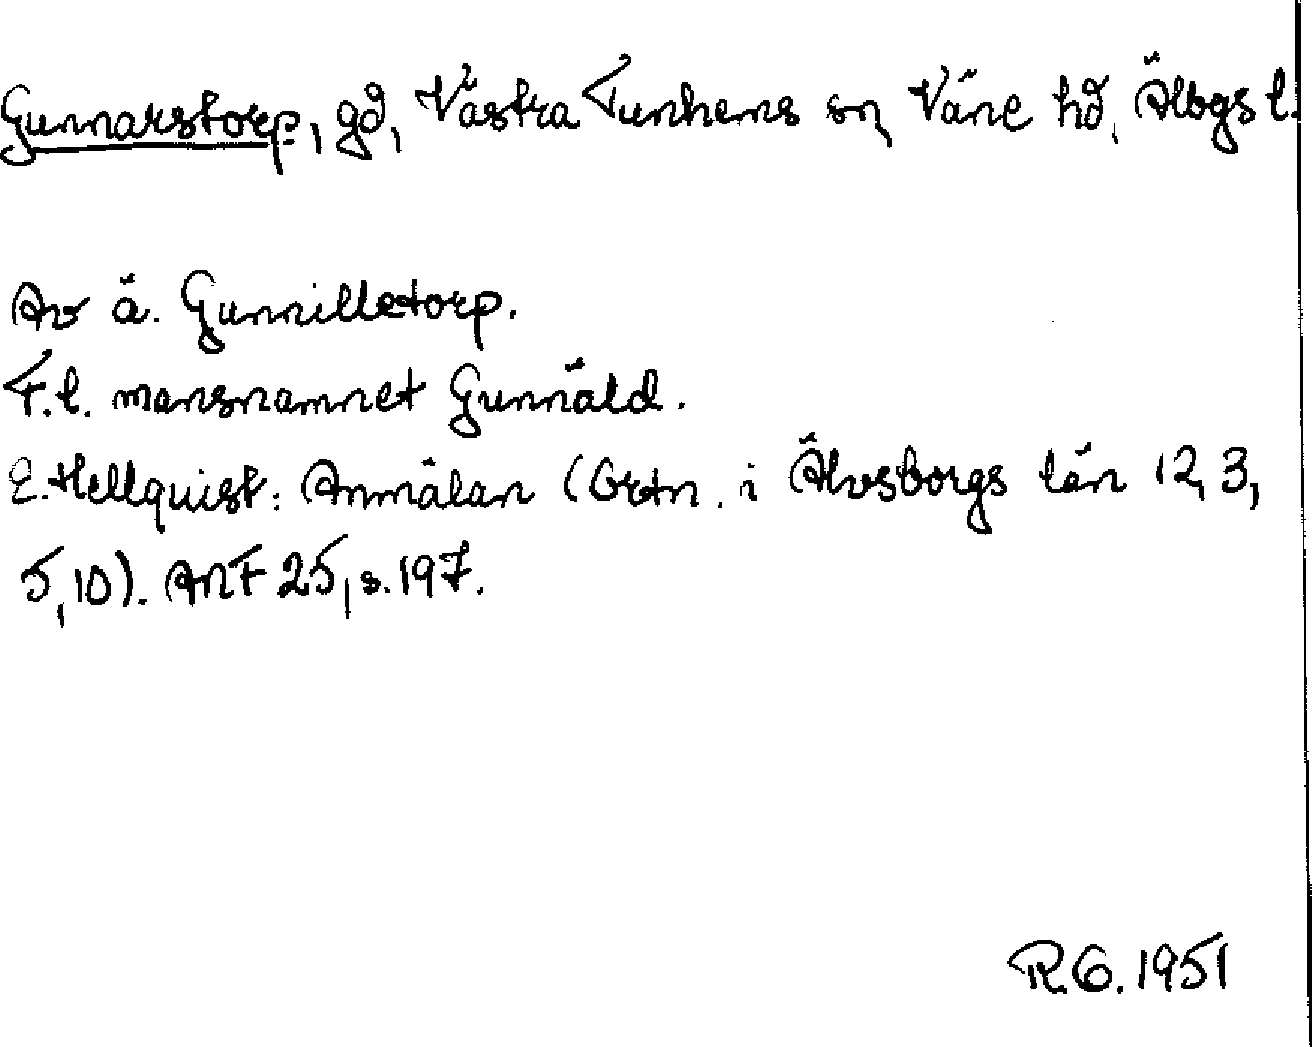 Gunnarstorp, gd, Västra Tunhems sn, Väne hd, Älvbgs l.
Av ä. Gunnilletorp.
T.l. mansnamnet Gunnäld.
E. Hellquist: Anmälan (Ortn. i Älvsborgs län 12, 3,
5, 10). ANF 25, s. 197.
R.G. 1951